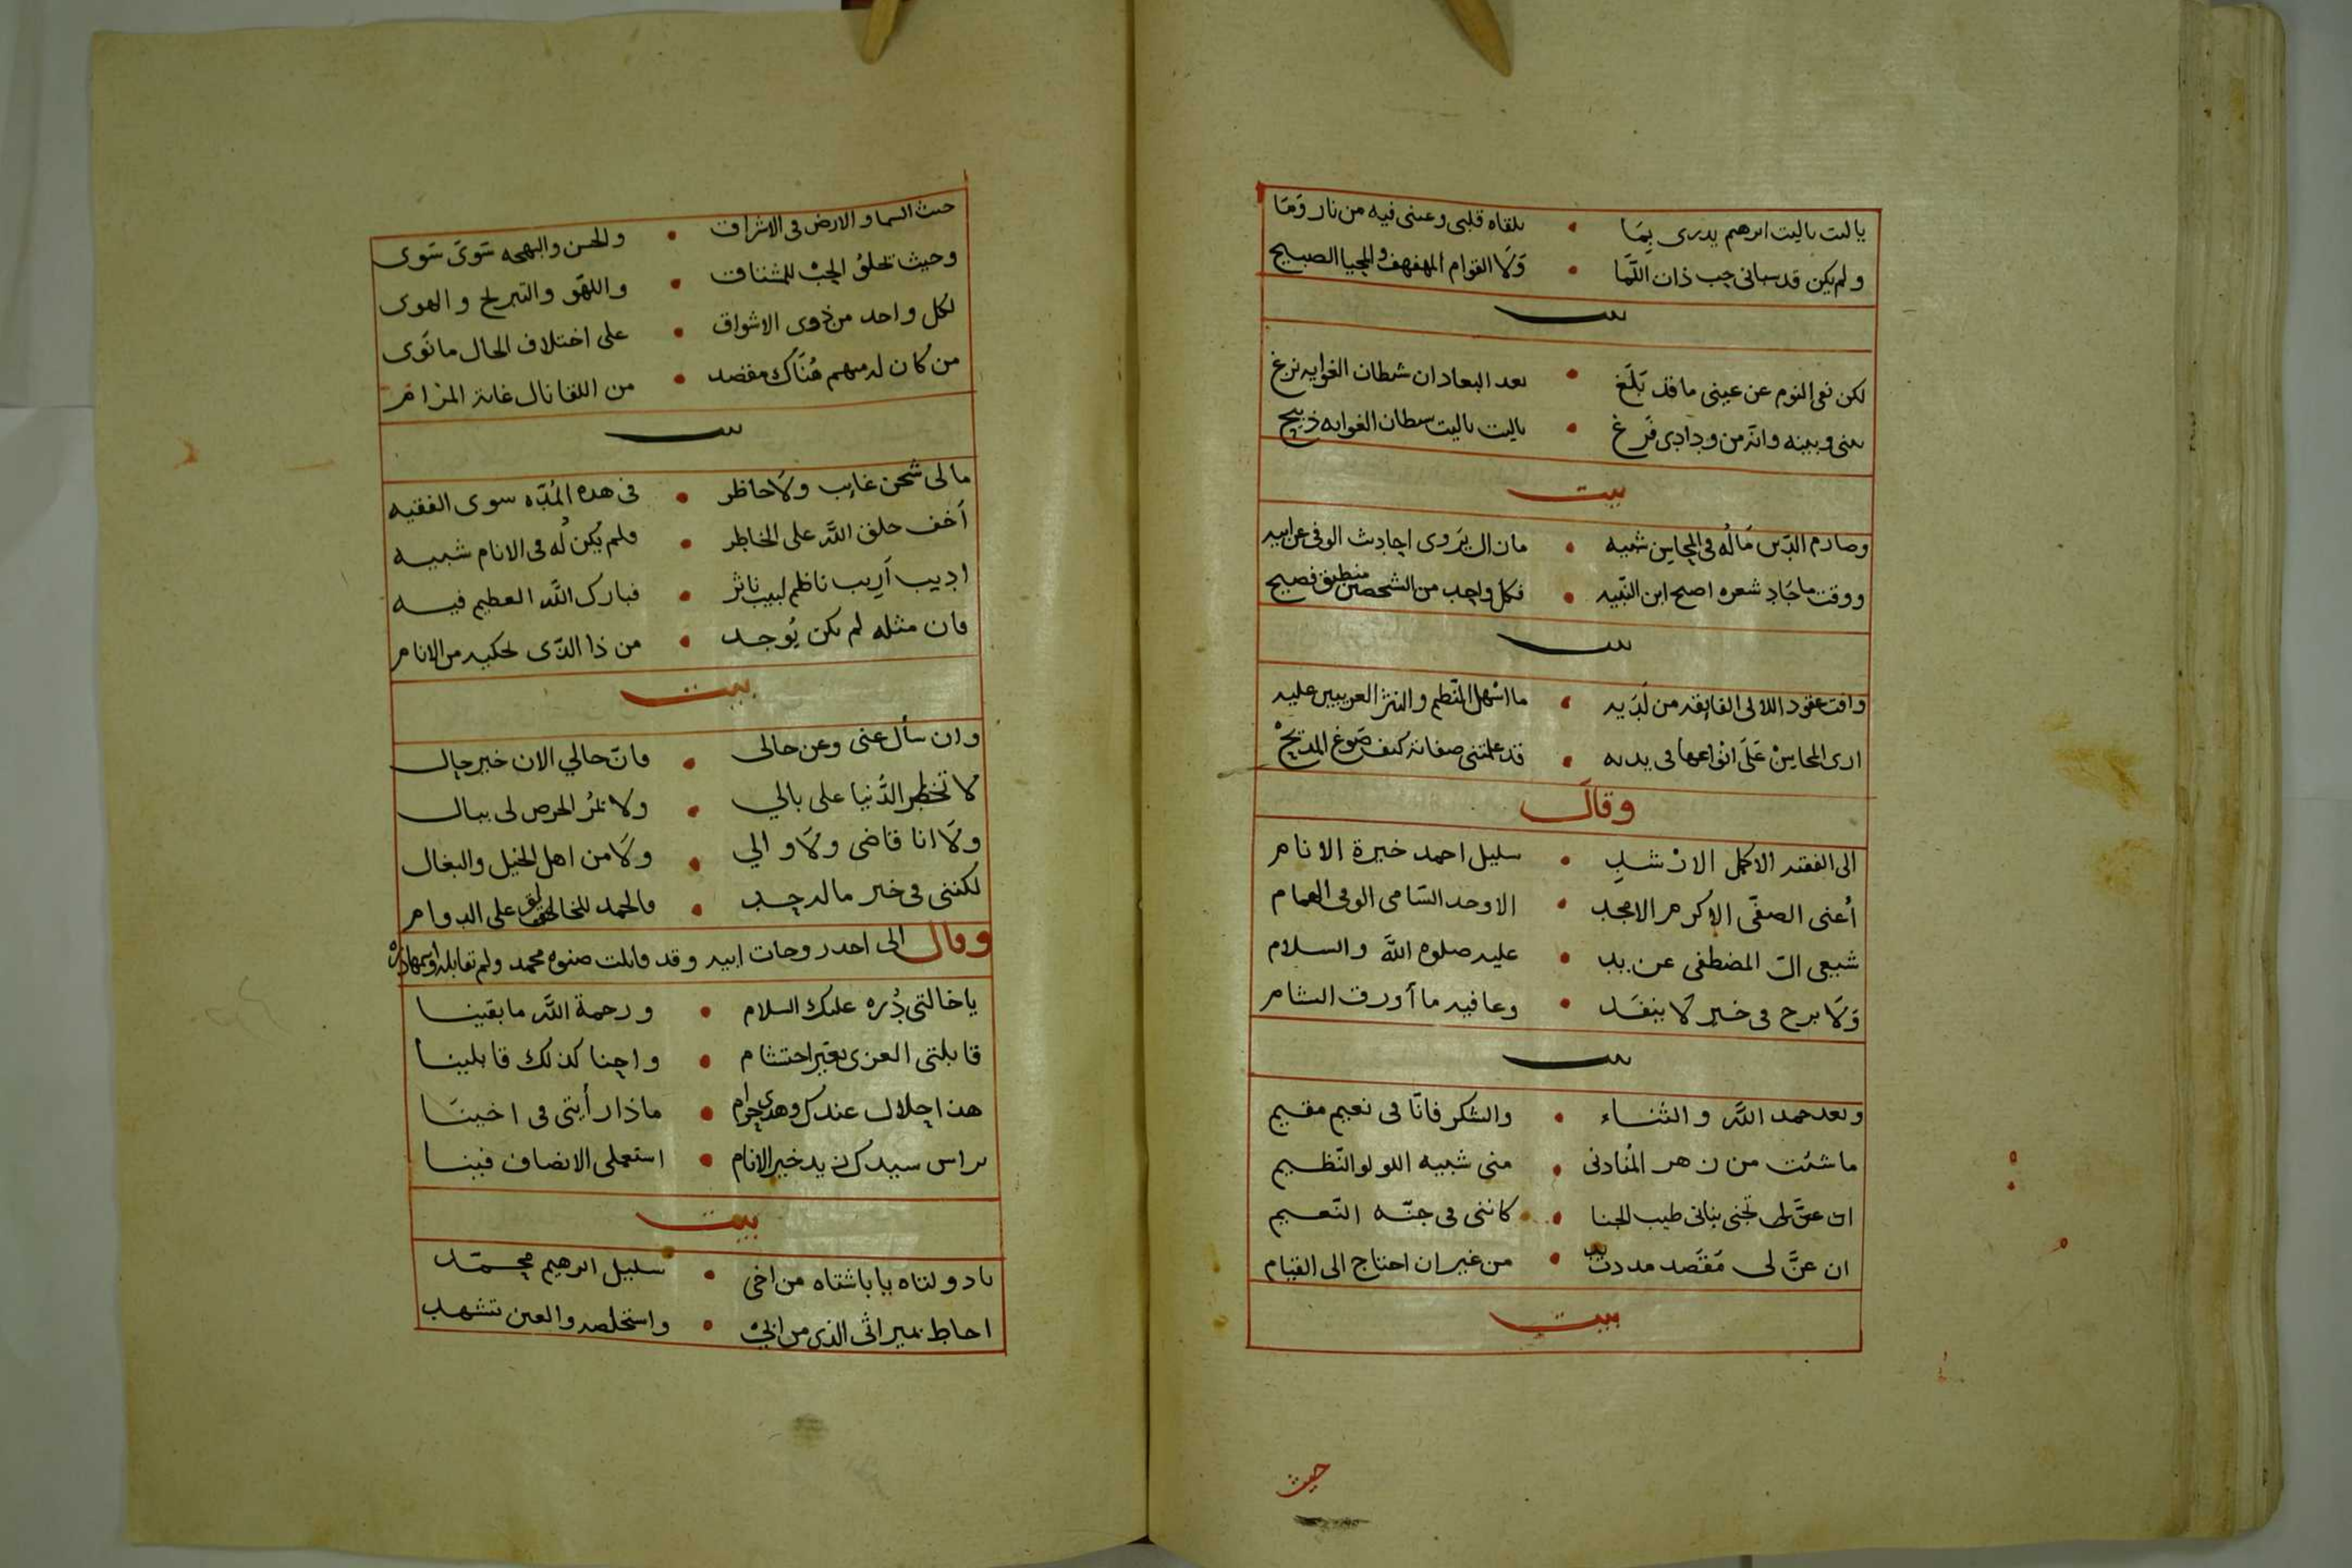 يا ليت يا ليت ابرهيم يدرى بِمَا • يلقاه قلبى وعينى فيه من نار وَمَا
ولم يكن قد سبانى حب ذات اللَّمَا • وَلَا القوام المهفهف والمحيا الصبيح
بيت
لكن نفى النوم عن عينى ما قد بَلَغ • بعد البعاد ان شطان الغوايه نزغ
بينى وبينه وانه من ودادى فَرَغ • ياليت ياليت سطان الغوايه ذبيح
بيت
وصارم الدين مَالُه فى المحاسن شبيه • مازال يَروى احاديث الوفى عن ابيه
ووقت ما جَاد شعره اصبح ابن النَّبيه • فكل واحد من الشخصين منطيق فصيح
بيت
وافت عقود اللالى الفايقه من لَدَيه • ما اسْهل النَّظم والنثر الغريبين عليه
ارى المحاسِنْ عَلَى انْواعها فى يديه • قد علمتنى صفاته كيف صَوغ المديحْ
وقال
الى الفقيه الاكمل الارْشدِ • سليل احمد خيرة الانام
أعنى الصفّى الاكرم الامجد • الاوحد السَّامى الوفى الهمام
شبعى ال المصطفى عن يد • عليه صلوه الله والسلام
وَلَا برح فى خير لَا ينفَد • وعافيه ما أورق الشام
بيت
وبعد حمد الله والثناء • والشكر فانّا فى نعيم مقيم
ما شئت من زهر المُنادنى • منى شبيه اللولو النَّظيم
ان عنَّ لى تجنى بنانى طيب الجنا • كاننى فى جنّه النَّعيم
ان عنَّ لى مَقْصد مددت يد • من غير ان احتاج الى القيام
بيت
حيث
حيث السما والارض فى الاشراق • والحسن والبهجه سَوىً سَوى
وحيث تخلقُ الحبْ للمشتاق • واللهْو والتبريح والهوى
لكل واحد من ذوى الاشواق • على اختلاف الحال ما نَوى
من كان له منهم هُنَاك مقصد • من اللقا نال غاية المرام
بيت
مالى شجن غايب ولَا حاظر • فى هذه المُدّه سوى الفقيه
أخف خلق الله على الخاطر • ولم يكن لُه فى الانام شبيه
اديب أريب ناظم لبيب ناثر • فبارك الله العظيم فيه
فان مثله لم يكن يُوجد • من ذا الذّى يحكيه من الانام
بيت
وان سأل عنى وعن حالى • فانّ حالي الان خير حال
لا تخطر الدُّنيا على بالي • ولا يمُر الحرص لى ببال
ولَا انا قاضى ولَا والي • ولَا من اهل الخيل والبغال
لكننى فى خير ماله حد • فالحمد للخالق على الدوام
وقال الى احدى زوجات ابيه وقد قابلت صنوه محمد ولم تقابله
يا خالتى دُره عليك السلام • ورحمة الله ما بقينا
قابلتى العزى بغير احتشام • واحنا كذلك قابلينا
هذا حلال عندك وهذى حرام • ماذا رأيتى فى اخينا
براس سيدك زيد خير الانام • استعملى الانصاف فينا
بيت
يا دولتاه يا باشتاه من اخى • سليل ابرهيم محمّد
احاط بميراثى الذى من ابي • واستخلصه والعين تشهد